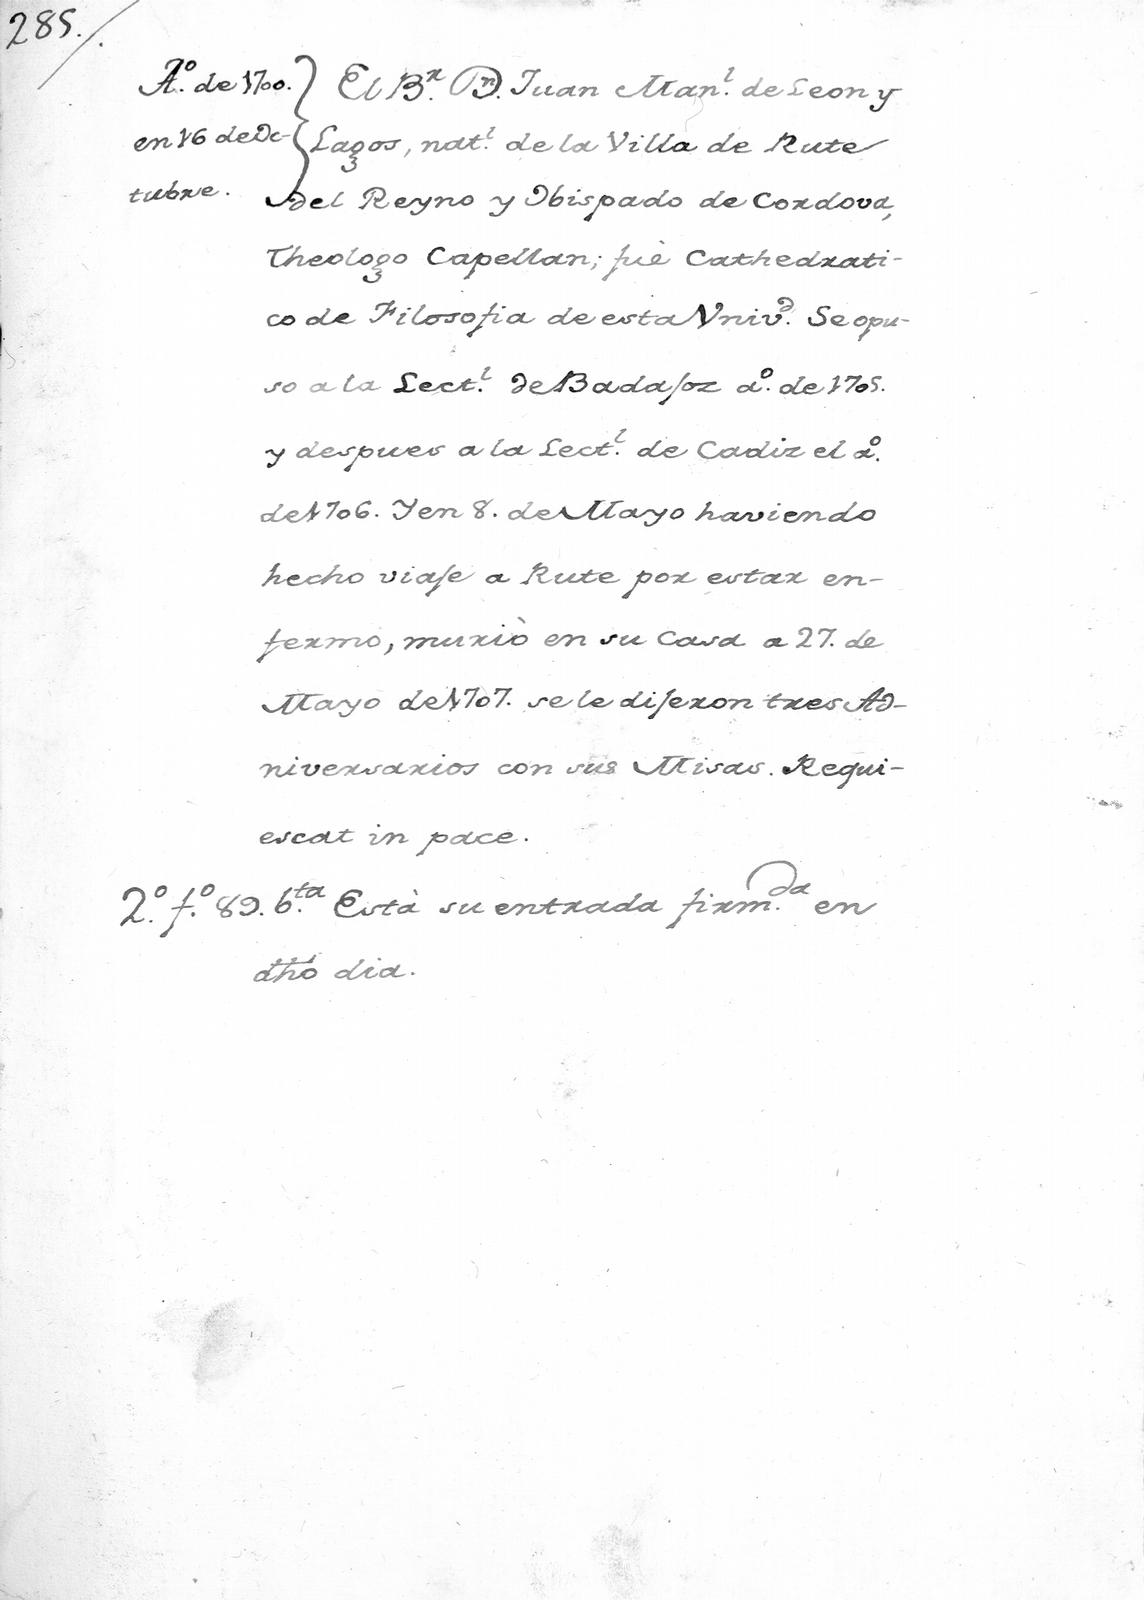 285.
Aº. de 1700.
en 16 de Oc-
tubre.
El Bʳ. Dⁿ. Juan Manˡ. de Leon y
Lagos, natˡ. de la Villa de Rute
del Reyno y Obispado de Cordova,
Theologo Capellan; fuè Cathedrati-
co de Filosofia de esta Vnivᵈ. Se opu-
so a la Lectˡ. de Badajoz aº. de 1705.
y despues a la Lectˡ. de Cadiz el aº.
de 1706. Y en 8. de Mayo haviendo
hecho viaje a Rute por estar en-
fermo, muriò en su Casa a 27. de
Mayo de 1707. se le dijeron tres Ad-
niversarios con sus Misas. Requi-
escat in pace.
2º. fº. 89. bᵗᵃ. Està su entrada firm.ᵈᵃ en
dhô dia.